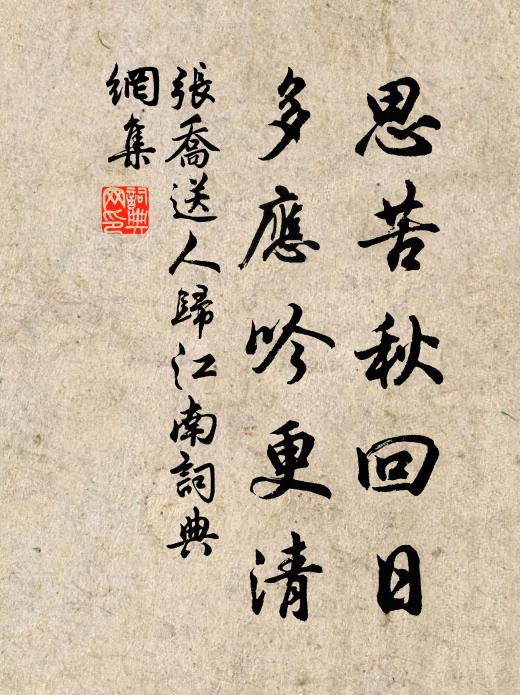 思苦秋回日
多應吟更清
張喬送人歸江南詞典
網集
詞典網印